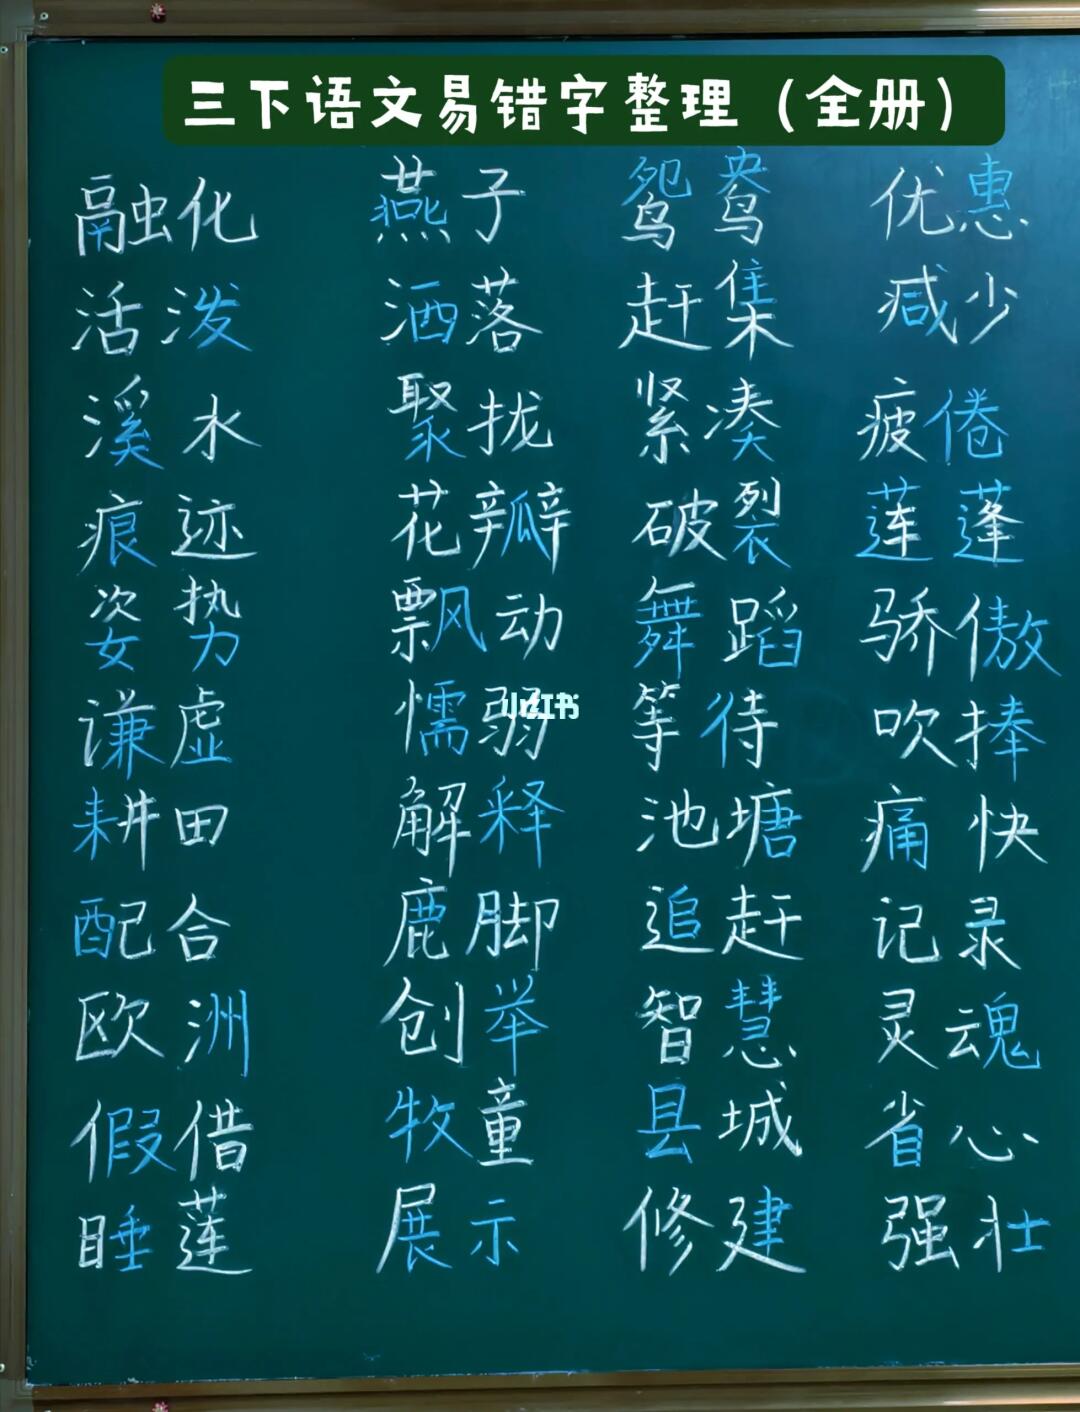 三下语文易错字整理（全册）
融化 燕子 鸳鸯 优惠
活泼 洒落 赶集 减少
溪水 聚拢 紧凑 疲倦
痕迹 花瓣 破裂 莲蓬
姿势 飘动 舞蹈 骄傲
谦虚 懦弱 等待 吹捧
小红书
耕田 解释 池塘 痛快
配合 鹿脚 追赶 记录
欧洲 创举 智慧 灵魂
假借 牧童 县城 省心
睡莲 展示 修建 强壮